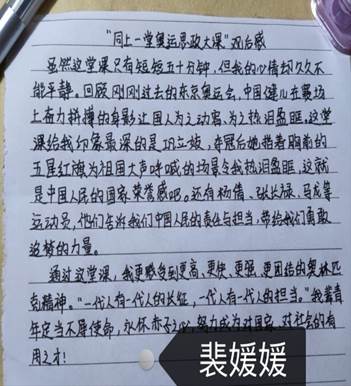 “同上一堂奥运思政大课”观后感
虽然这堂课只有短短五十分钟，但我的心情却久久不
能平静。回顾刚刚过去的东京奥运会，中国健儿在赛场
上奋力拼搏的身影让国人为之动容、为之热泪盈眶，这堂
课给我印象最深的是巩立姣，夺冠后她指着胸前的
五星红旗为祖国大声呼喊的场景令我热泪盈眶，这就
是中国人民的国家荣誉感吧。还有杨倩、张长禄、马龙等
运动员，他们告诉我们中国人民的责任与担当，带给我们勇敢
追梦的力量。
通过这堂课，我更感受到更高、更快、更强、更团结的奥林匹
克精神。“一代人有一代人的长征，一代人有一代人的担当。”我辈青
年定当不辱使命，永怀赤子之心，努力成为对国家、对社会的有
用之才！
裴媛媛